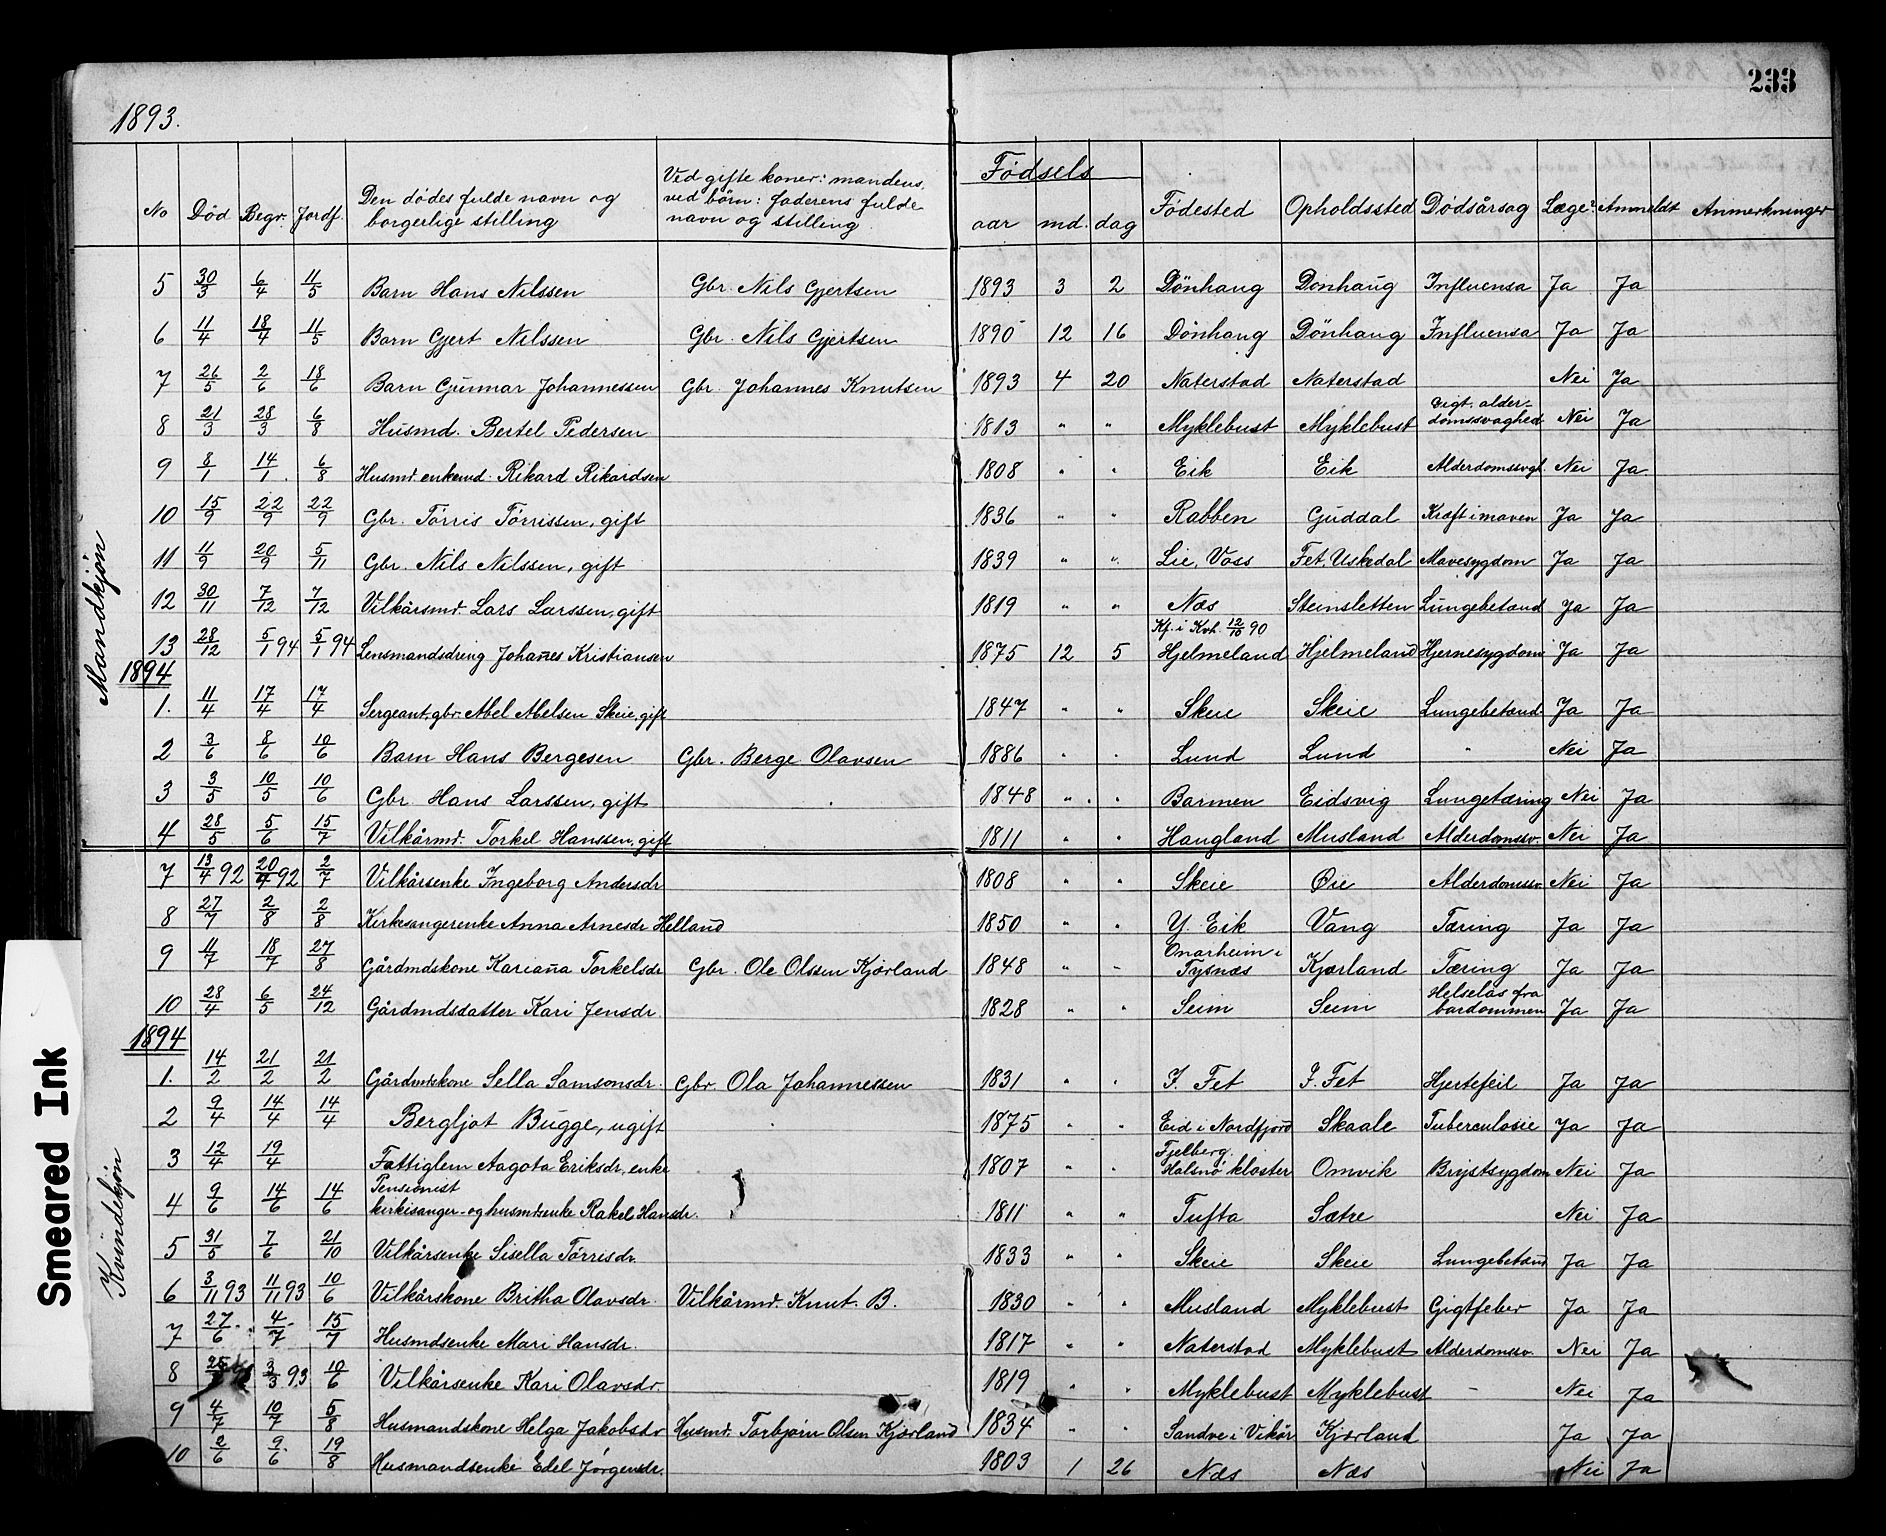 233
1893.
No Død Begr. Jordf. Den dødes fulde navn og borgerlige stilling Ved gifte koner: mandens, ved børn: faderens fulde navn og stilling Fødsels aar md. dag Fødested Opholdssted Dødsårsag Læge? Anmeldt Anmerkninger
Mandkjön
5 30/3 6/4 11/5 Barn Hans Nilssen Gbr. Nils Gjertsen 1893 3 2 Dönhaug Donhaug Influensa Ja Ja
6 11/4 18/4 11/5 Barn Gjert Nilssen Gbr. Nils Gjertsen 1890 12 16 Dönhaug Dönhaug Influensa Ja Ja
7 26/5 2/6 18/6 Barn Gunnar Johannessen Gbr. Johannes Knutsen 1893 4 20 Naterstad Naterstad Nei Ja
8 21/3 28/3 6/8 Husmd. Bertel Pedersen 1813 " " Myklebust Myklebust Gigt, alder-domssvaghed Nei Ja
9 8/1 14/1. 6/8 Husmd. enkemd. Rikard Rikardsen 1808 " " Eik Eik Alderdomssvgt. Nei Ja
10 15/9 22/9 22/9 Gbr. Törris Törrissen, gift 1836 " " Rabben Guddal Kræft i maven Ja Ja
11 11/9 20/9 5/11 Gbr. Nils Nilssen, gift 1839 " " Lie, Voss Fet, Uskedal Mavesygdom Ja Ja
12 30/11 7/12 7/12 Vilkårsmd. Lars Larssen, gift 1819 " " Næs Steinsletten Lungebetænd Ja Ja
13 28/12 5/1 94 5/1 94 Lensmandsdreng Johañes Kristiansen 1875 12 5 Kf. i Kvh. 12/10 90 Hjelmeland Hjelmeland Hjernesygdom Ja Ja
1894
1. 11/4 17/4 17/4 Sergeant, gbr. Abel Abelsen Skeie, gift 1847 " " Skeie Skeie Lungebetænd. Ja Ja
2 3/6 8/6 10/6 Barn Hans Bergesen Gbr. Berge Olavsen 1886 " " Lund Lund " Nei Ja
3 3/5 10/5 10/6 Gbr Hans Larssen, gift 1848 " " Barmen Eidsvig Lungetæring Nei Ja
4 28/5 5/6 15/7 Vilkårmd. Torkel Hanssen, gift 1811 " " Haugland Musland Alderdomssv. Nei Ja
Kvindekjön
7 13/4 92 20/4 92 2/7 Vilkårsenke Ingeborg Andersdr 1808 " " Skeie Øie Alderdomssv Nei Ja
8 27/7 2/8 2/8 Kirkesangerenke Anna Arnesdr Helland 1850 " " Y. Eik Vang Tæring Ja Ja
9 11/7 18/7 27/8 Gårdmdskone Kariaña Torkelsdr Gbr. Ole Olssen Kjærland 1848 " " Onarheim i Tysnæs Kjærland Tæring Ja Ja
10 28/4 6/5 24/12 Gårdmdsdatter Kari Jensdr 1828 " " Seim Seim Helseløs fra bardommen Ja Ja
1894
1. 14/2 21/2 21/2 Gårdmdskone Sella Samsonsdr. Gbr. Ola Johannessen 1831 " " I. Fet I. Fet Hjertefeil Ja Ja
2 9/4 14/4 14/4 Bergljot Bugge, ugift 1875 " " Eid i Nordfjord Skaale Tuberculosie Ja Ja
3 12/4 19/4 Fattiglem Aagota Eriksdr, enke 1807 " " Fjelberg Halsnø kloster Omvik Brystsygdom Nei Ja
4 9/6 14/6 14/6 Pensionist kirkesanger- og husmdsenke Rakel Hansdr. 1811 " " Tufta Sætre Nei Ja
5 31/5 7/6 21/10 Vilkårsenke Sisella Törrisdr. 1833 " " Skeie Skeie Lungebetænd Ja Ja
6 3/11 93 11/11 93 10/6 Vilkårskone Britha Olavsdr. Vilkårmd. Knut. B. 1830 " " Musland Myklebust Gigtfeber Ja Ja
7 27/6. 4/7. 15/7 Husmdsenke Mari Hansdr. 1817 " " Naterstad Myklebust Alderdomssv. Nei Ja
8 3/3 93 10/6 Vilkårsenke Kari Olavsdr. 1819 " " Myklebust Myklebust - Nei Ja
9 4/7 10/7 5/8 Husmandskone Helga Jakobsdr Husmd. Torbjørn Olsen Kjærland 1834 " " Sandve i Vikör Kjærland Ja Ja
10 2/6 9/6 19/8 Husmandsenke Edel Jørgensdr. 1803 1 26 Næs Næs Nei Ja
Smeared Ink